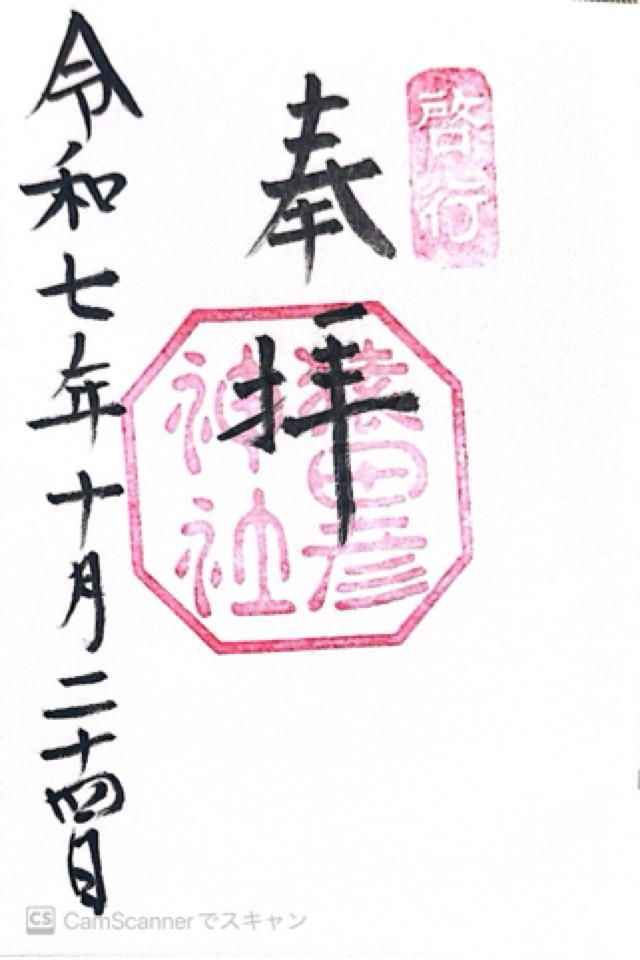 啓行
奉拝
猿田彦
神社
令和七年十月二十四日
CS CamScannerでスキャン